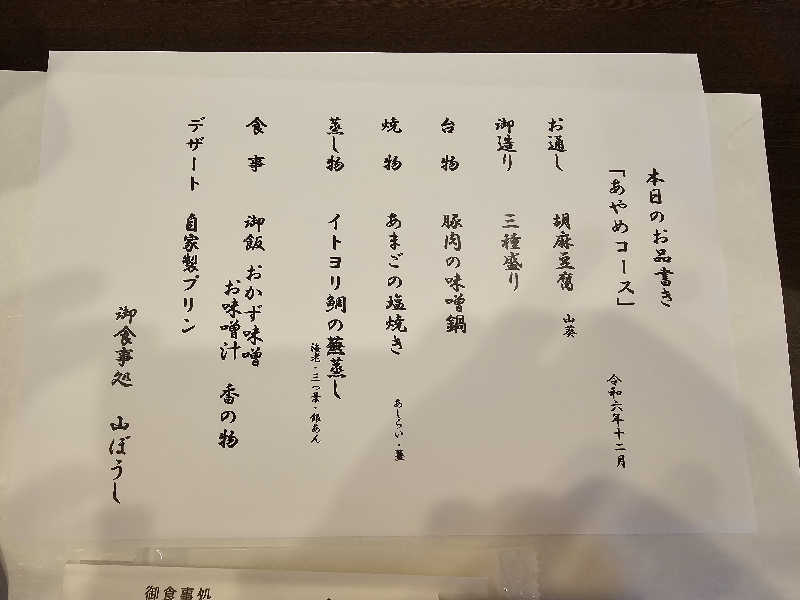 本日のお品書き
「あやめコース」 令和六年十二月
お通し 胡麻豆腐 山葵
御造り 三種盛り
台物 豚肉の味噌鍋
焼物 あまごの塩焼き あしらい・薑
蒸し物 イトヨリ鯛の蕪蒸し
海老・三つ葉・銀あん
食事 御飯 おかず味噌
お味噌汁 香の物
デザート 自家製プリン
御食事処 山ぼうし
御食事処